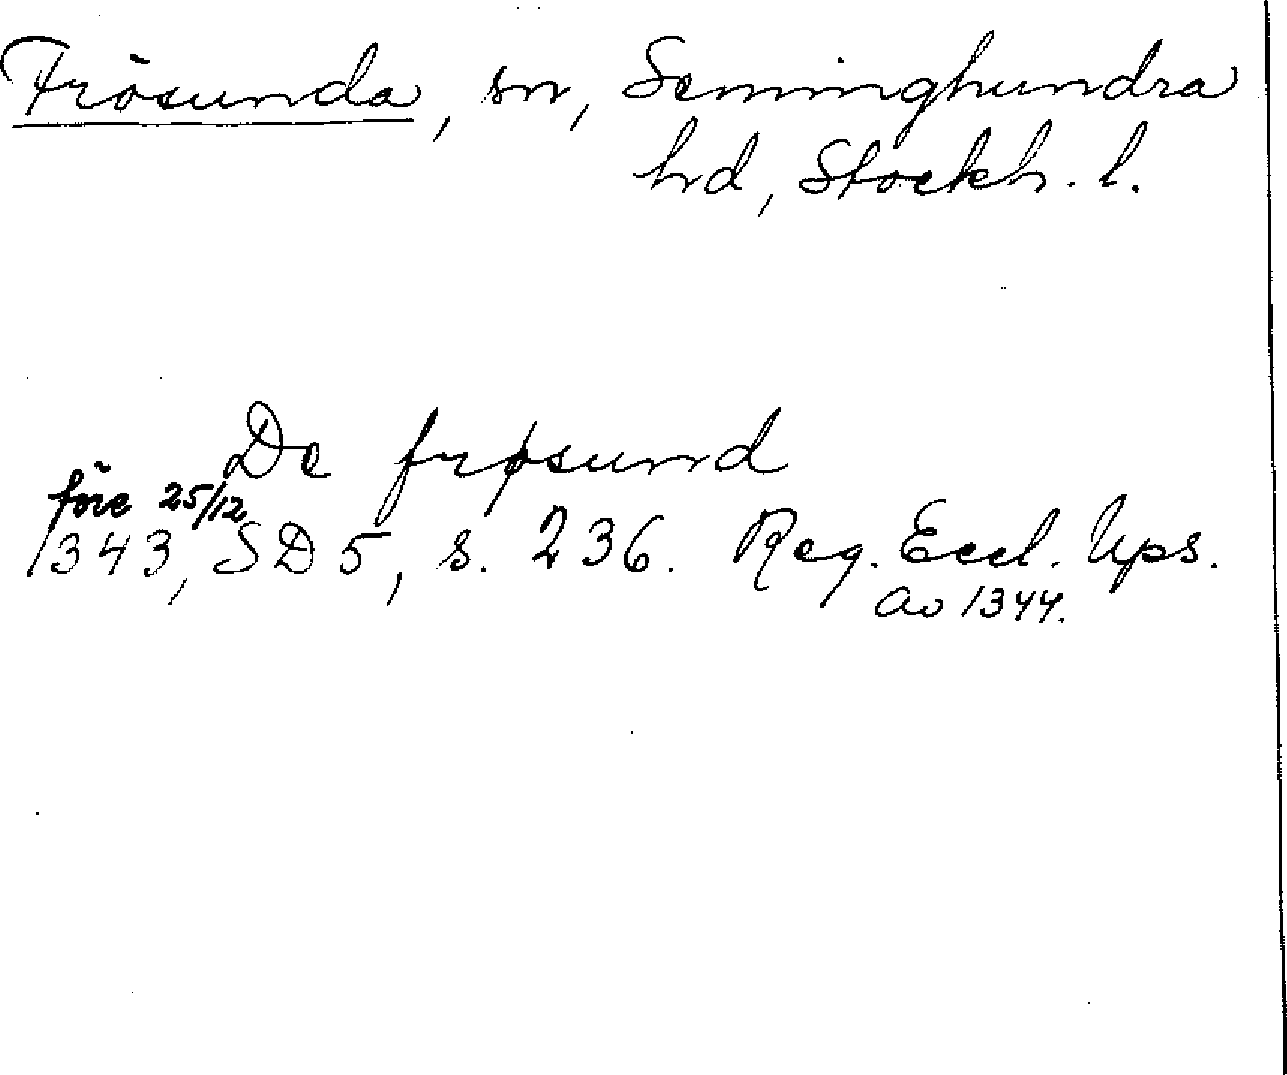 Frösunda, sn, Seminghundra
hd, Stockh. l.
De frøsund
före 25/12
1343, SD 5, s. 236. Reg. Eccl. Ups.
av 1344.